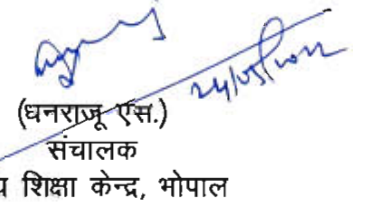 24/05/2022
(धनराजू एस.)
संचालक
शिक्षा केन्द्र, भोपाल